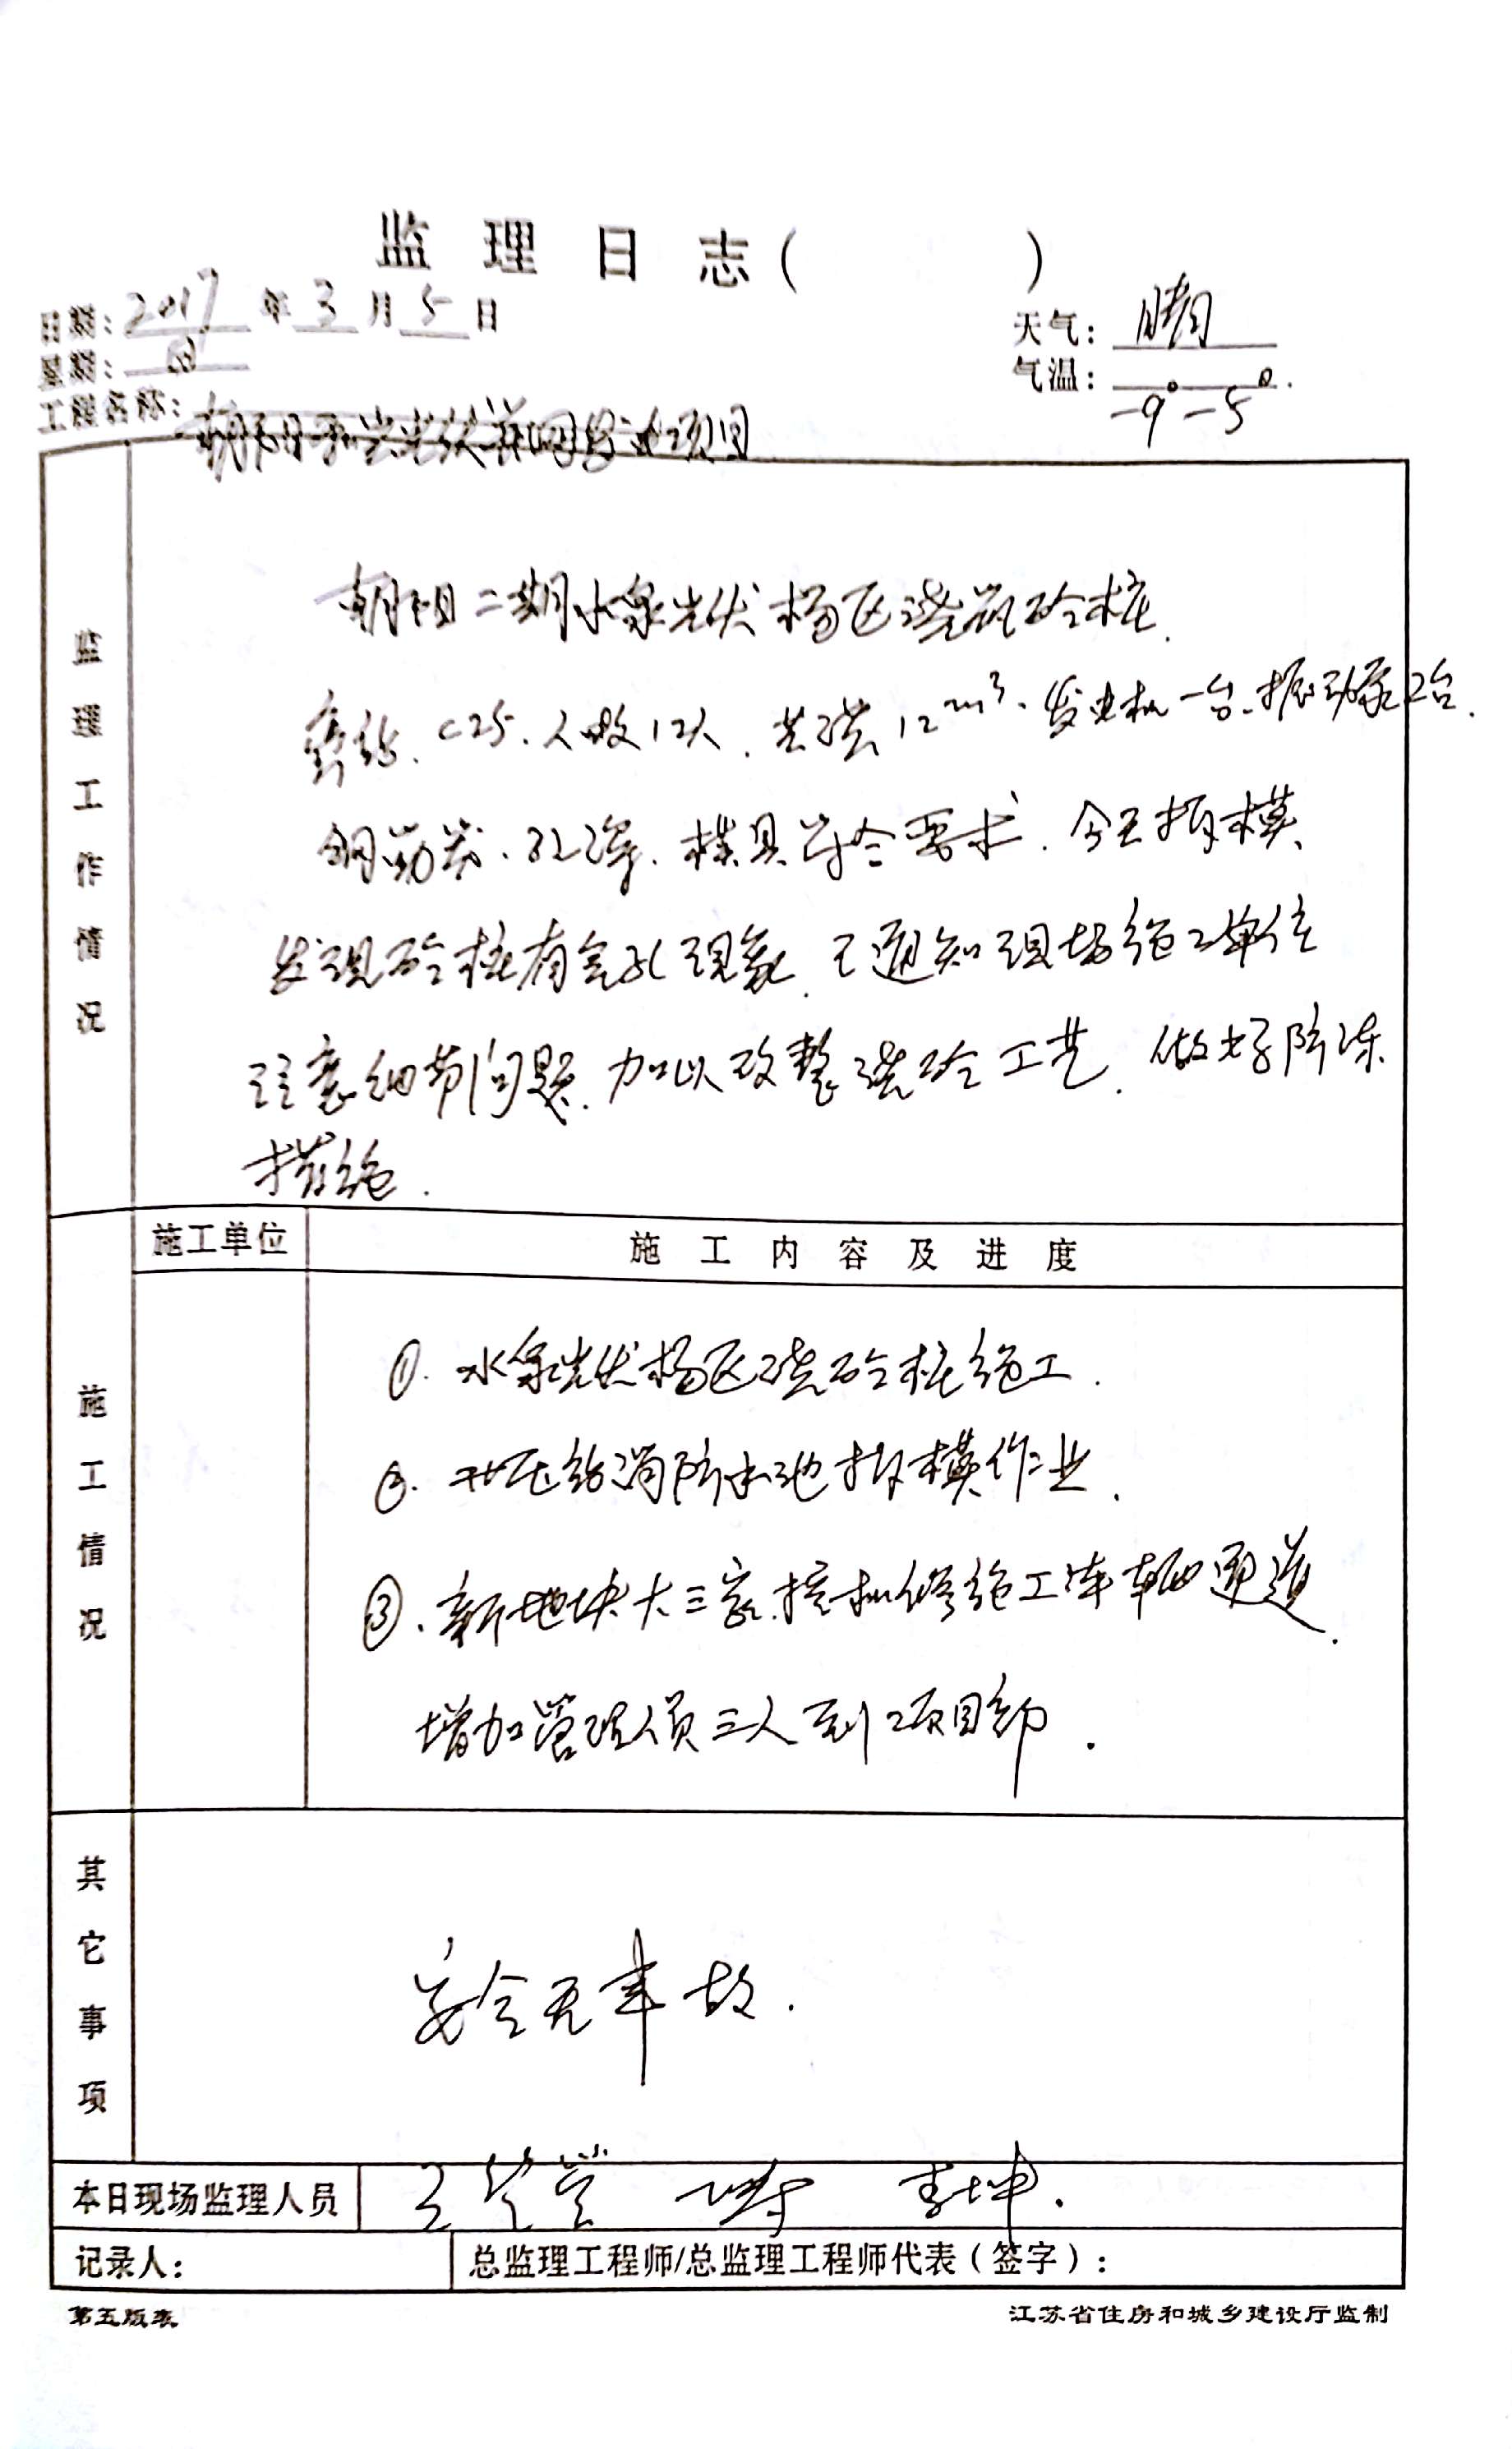 监理日志（ ）
日期：2017年3月5日
天气：晴
星期：日
气温：-9°-5°
工程名称：朝阳和兴光伏并网发电项目
监理工作情况
朝阳二期水泉光伏杨区浇筑砼桩.
C25.人数12人.共浇12m³.发电机一台.振动泵2台.
钢筋笼.孔深.模具符合要求.今天拆模
发现砼桩有空孔现象.已通知现场施工单位
注意细节问题.加以改整浇砼工艺.做好防冻
措施.
施工单位
施工内容及进度
施工情况
①.水泉光伏杨区浇砼桩施工.
②.升压站消防水池拆模作业.
③.新地块大三家.挖机修施工车辆通道.
增加管理人员三人到项目部.
其它事项
安全无事故.
本日现场监理人员
李坤.
记录人：
总监理工程师/总监理工程师代表（签字）：
第五版表
江苏省住房和城乡建设厅监制